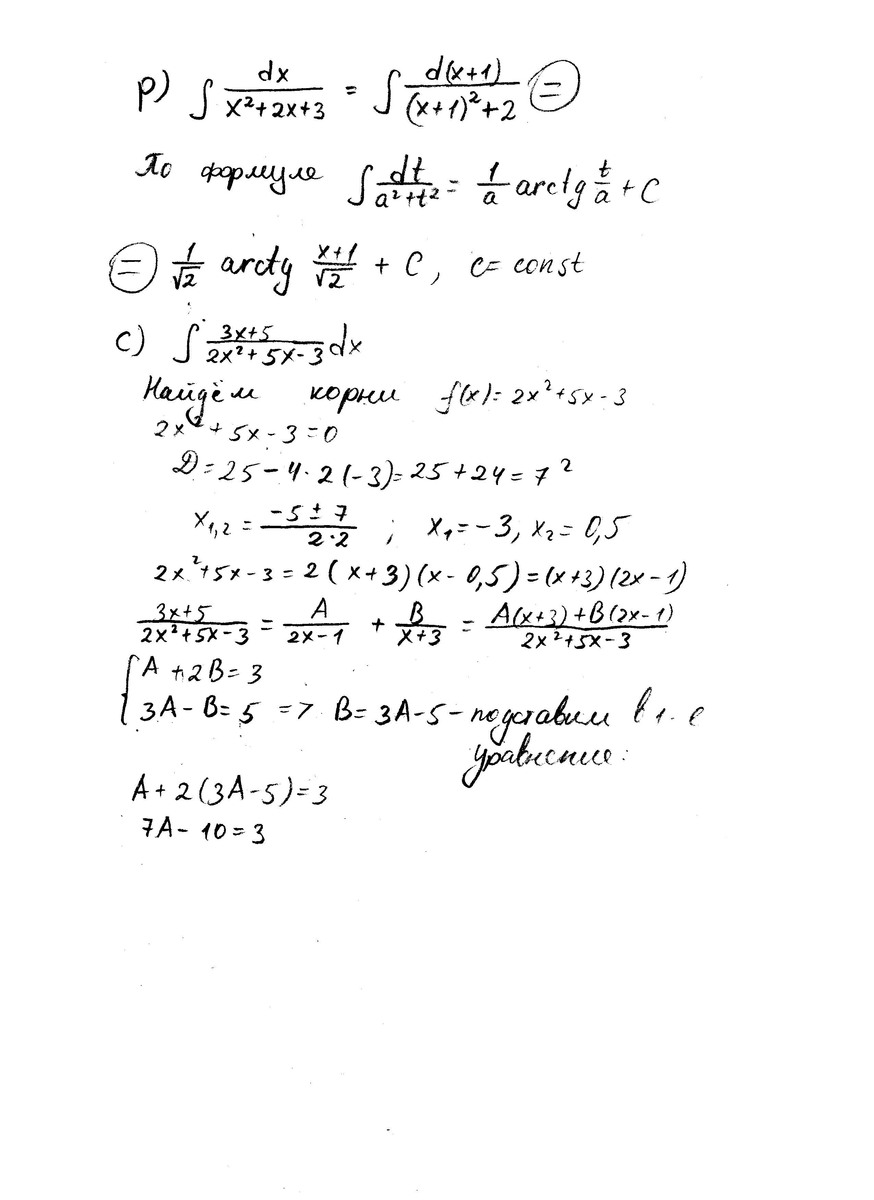 р) ∫ dx/(x²+2x+3) = ∫ d(x+1)/((x+1)²+2) ⊜
По формуле ∫ dt/(a²+t²) = 1/a arctg t/a + C
⊜ 1/√2 arctg (x+1)/√2 + C, c = const
с) ∫ (3x+5)/(2x²+5x-3) dx
Найдём корни f(x) = 2x²+5x-3
2x²+5x-3=0
D=25-4·2(-3)=25+24=7²
x₁,₂ = (-5±7)/(2·2) ; x₁=-3, x₂=0,5
2x²+5x-3=2(x+3)(x-0,5)=(x+3)(2x-1)
(3x+5)/(2x²+5x-3) = A/(2x-1) + B/(x+3) = (A(x+3)+B(2x-1))/(2x²+5x-3)
{ A+2B=3
3A-B=5 => B=3A-5 - подставим в 1-е
уравнение:
A+2(3A-5)=3
7A-10=3